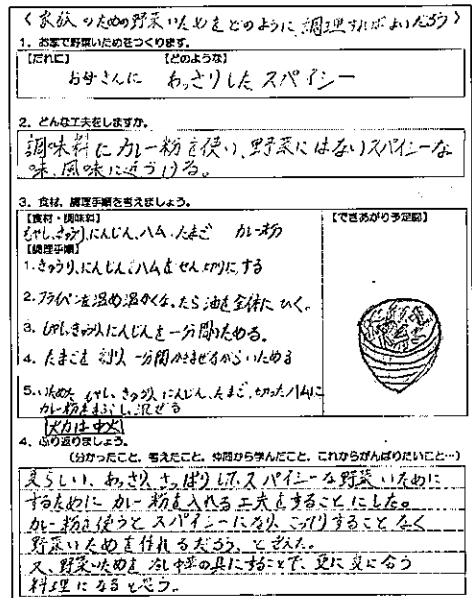 〈家族のための野菜いためをどのように調理すればよいだろう〉
1. お家で野菜いためをつくります。
【だれに】 【どのような】
お母さんに あっさりした スパイシー
2. どんな工夫をしますか。
調味料にカレー粉を使い、野菜にはないスパイシーな
味、風味に近づける。
3. 食材、調理手順を考えましょう。
【食材・調味料】 【できあがり予定図】
もやし、きゅうり、にんじん、ハム、たまご カレー粉
【調理手順】
1. きゅうり、にんじん、ハムをせん切りにする
2. フライパンを温め温かくなったら油を全体にひく。
3. もやし、きゅうり、にんじんを一分間いためる。
4. たまごを割り、一分間かきまぜながらいためる
5. いためた もやし、きゅうり、にんじん、たまご、切ったハムに
カレー粉をまぶし、混ぜる
火力は中火
4. ふり返りましょう。
(分かったこと、考えたこと、仲間から学んだこと、これからがんばりたいこと…)
夏らしい、あっさり、さっぱりして、スパイシーな野菜いために
するためにカレー粉を入れる工夫をすることにした。
カレー粉を使うとスパイシーになり、こってりすることなく
野菜いためを作れるだろう、と考えた。
又、野菜いためを冷し中華の具にすることで、更に夏に合う
料理になると思う。